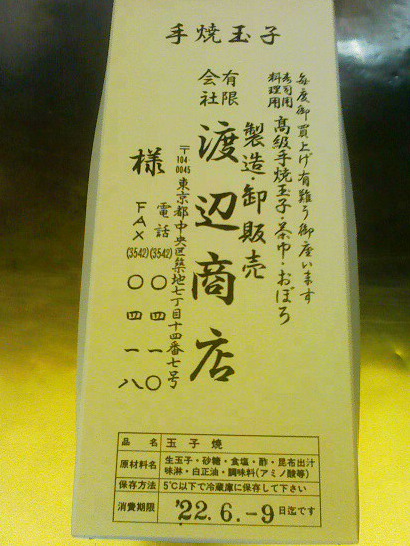 手焼玉子
毎度御買上げ有難う御座います
寿司用
料理用
高級手焼玉子・茶巾・おぼろ
製造・卸販売
有限
会社
渡辺商店
〒104
0045
東京都中央区築地七丁目十四番七号
電話(3542)〇四一〇
FAX(3542)〇四一八
様
品名 玉子燒
原材料名 生玉子・砂糖・食塩・酢・昆布出汁
味淋・白正油・調味料(アミノ酸等)
保存方法 5℃以下で冷蔵庫に保存して下さい
消費期限 '22.6.-9日迄です